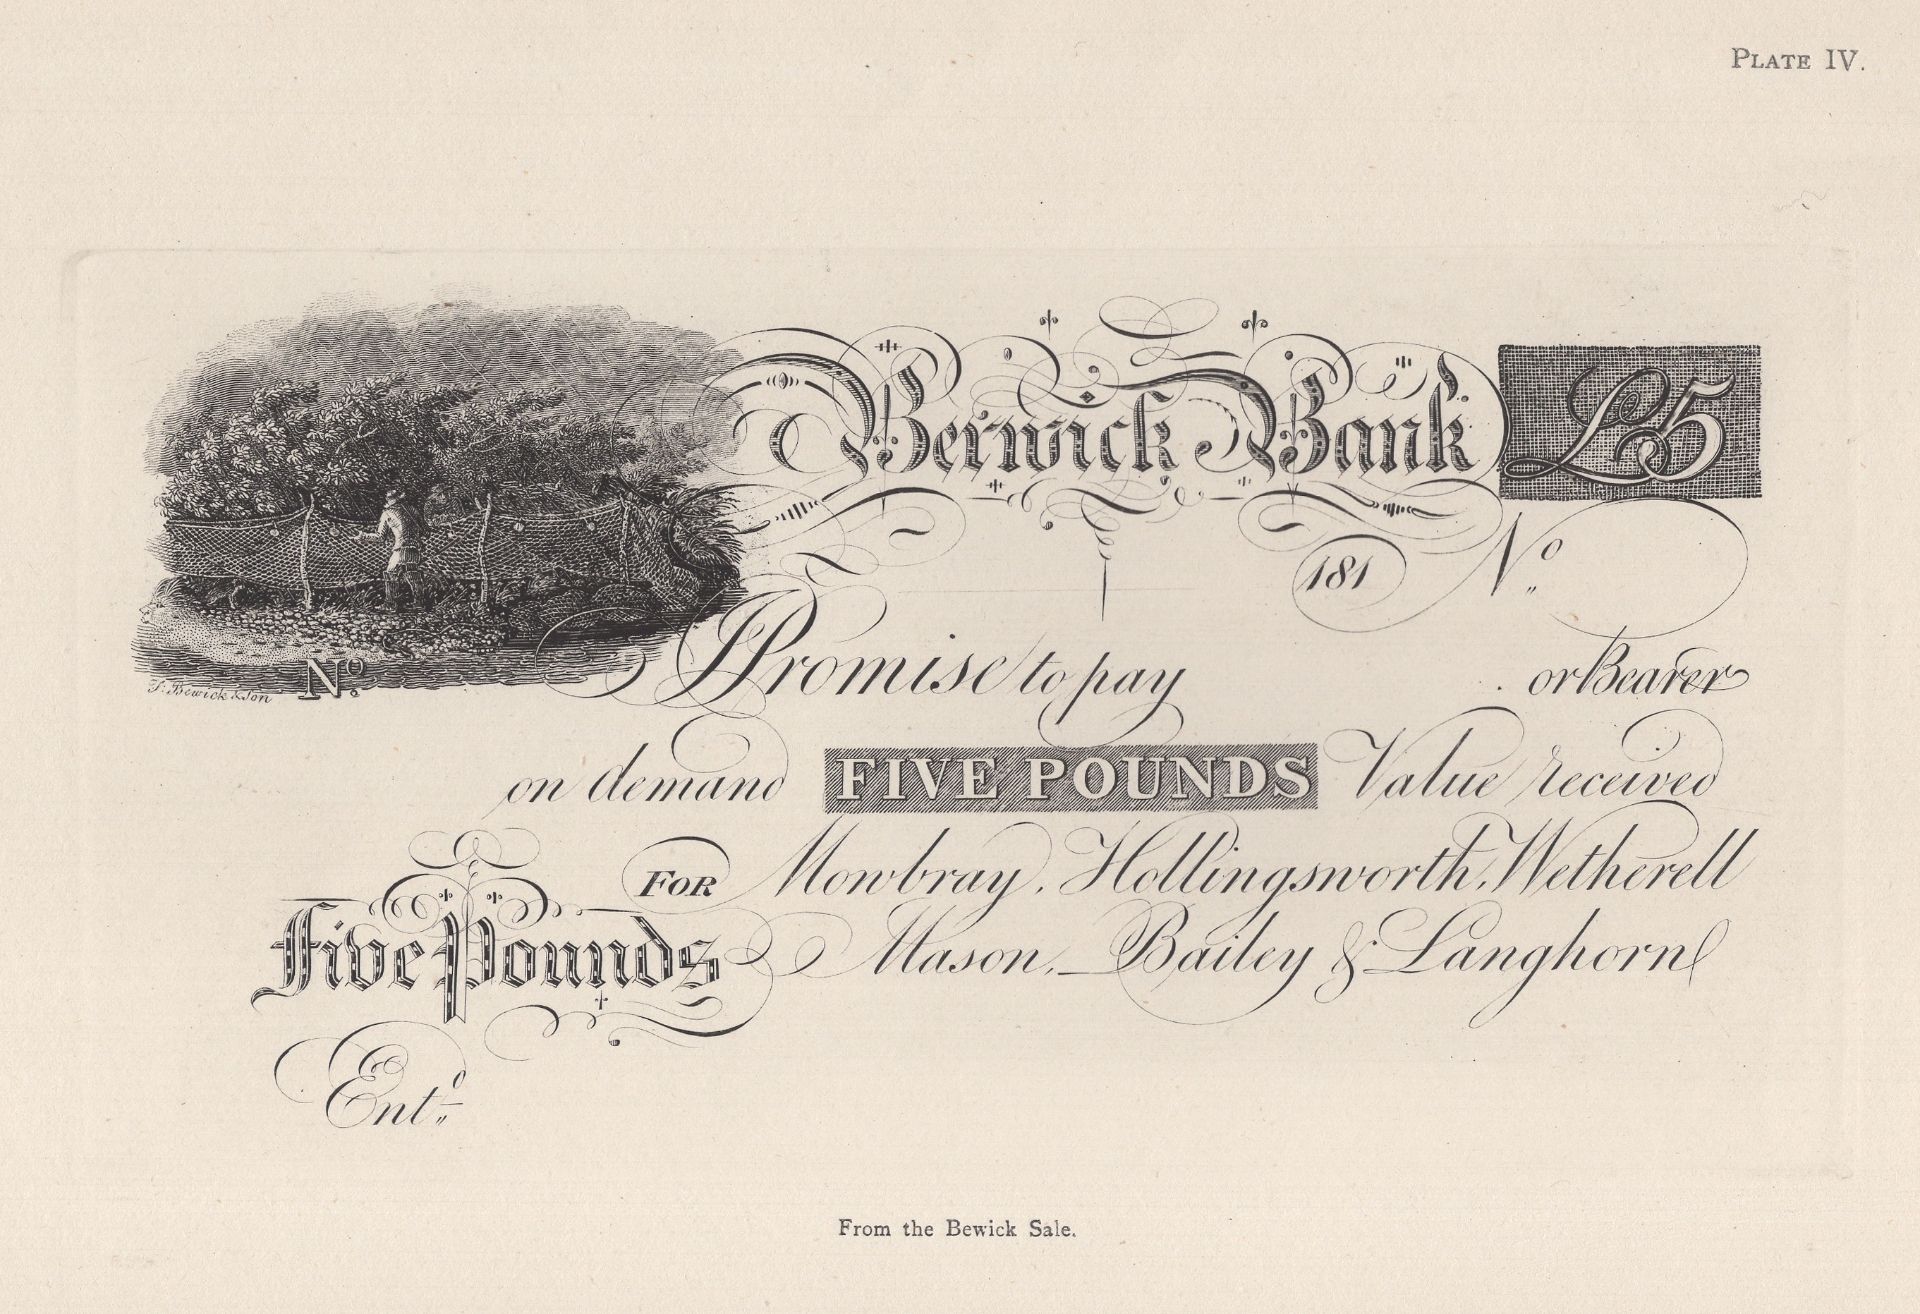 PLATE IV.
Berwick Bank £5
181 No
No.
T. Bewick & Son
I Promise to pay or Bearer
on demand FIVE POUNDS Value received
FOR Mowbray, Hollingsworth, Wetherell
Five Pounds Mason, Bailey & Langhorn
Ento
From the Bewick Sale.